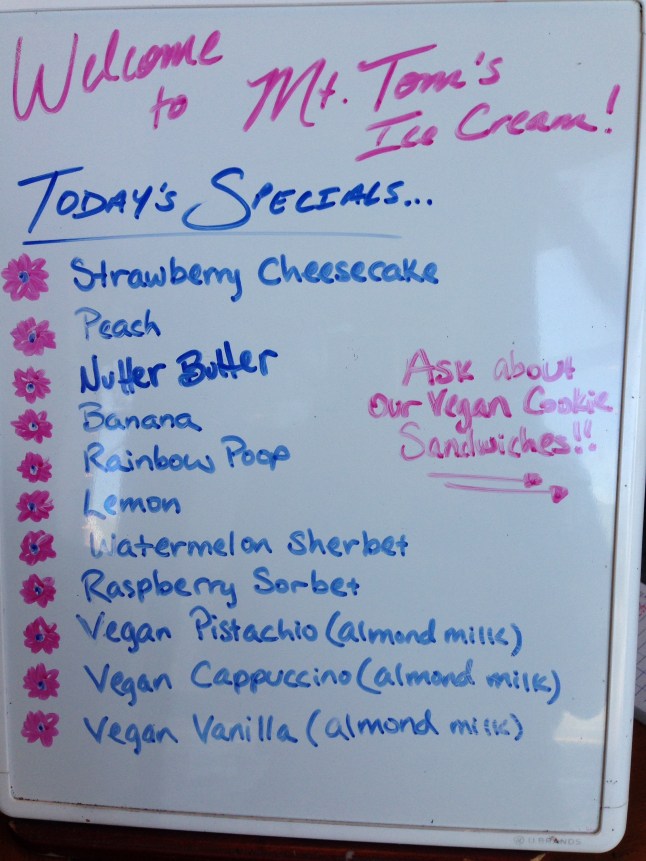 Welcome
to Mt. Tom's
Ice Cream!
TODAY'S SPECIALS...
Strawberry Cheesecake
Peach
Nutter Butter
Banana
Rainbow Poop
Lemon
Watermelon Sherbet
Raspberry Sorbet
Vegan Pistachio (almond milk)
Vegan Cappuccino (almond milk)
Vegan Vanilla (almond milk)
Ask about
our Vegan Cookie
Sandwiches!!
U BRANDS